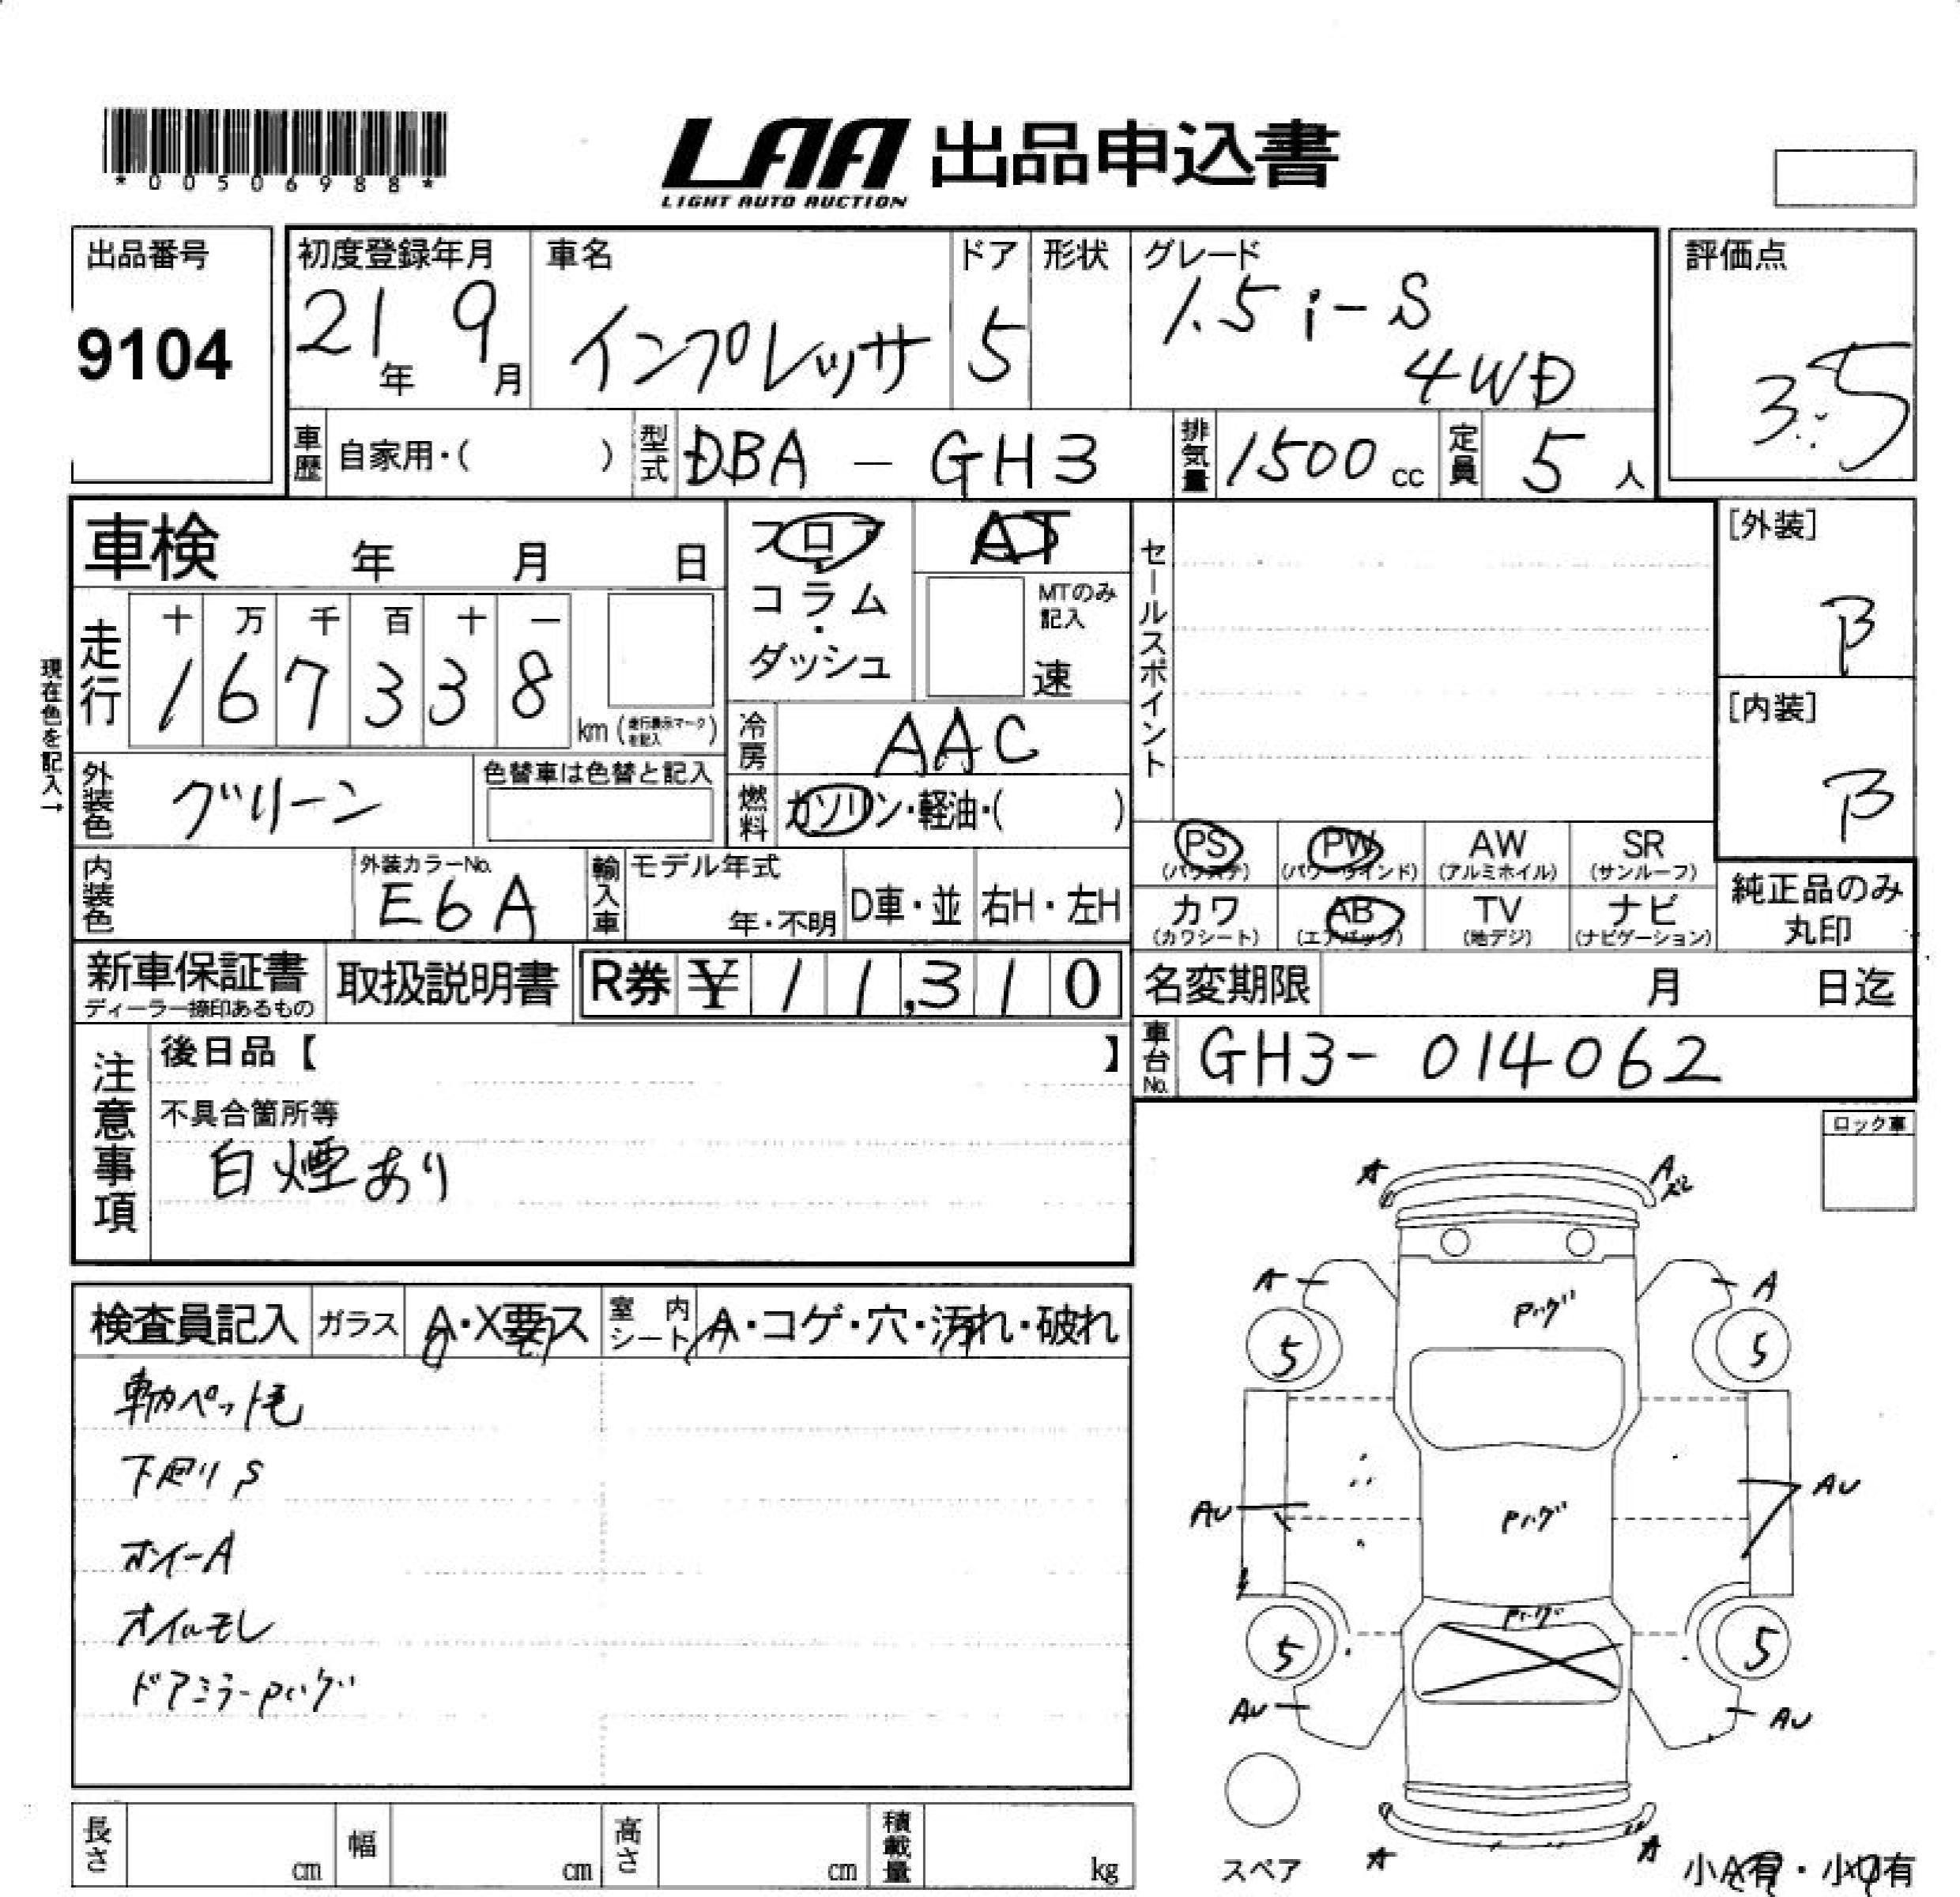 *00506988*
LAA 出品申込書
LIGHT AUTO AUCTION
出品番号
9104
初度登録年月
21年 9月
車名
インプレッサ
ドア
5
形状
グレード
1.5 i-S
4WD
評価点
3.5
車歴 自家用・( )
型式 DBA - GH3
排気量 1500 cc
定員 5 人
車検 年 月 日
フロア
・
コラム
・
ダッシュ
AT
MTのみ
記入
速
セールスポイント
[外装]
B
[内装]
B
現在色を記入→
走行
十 万 千 百 十 一
1 6 7 3 3 8
km (走行表示マークを記入)
冷房 AAC
外装色 グリーン
色替車は色替と記入
燃料 ガソリン・軽油・( )
PS (パワステ)
PW (パワーウインド)
AW (アルミホイル)
SR (サンルーフ)
内装色
外装カラーNo.
E6A
輸入車
モデル年式
年・不明
D車・並
右H・左H
カワ (カワシート)
AB (エアバック)
TV (地デジ)
ナビ (ナビゲーション)
純正品のみ
丸印
新車保証書
ディーラー捺印あるもの
取扱説明書
R券 ¥ 11,310
名変期限 月 日迄
車台No. GH3- 014062
注意事項
後日品【 】
不具合箇所等
白煙あり
ロック車
検査員記入
ガラス A・X要ス
室内シート A・コゲ・穴・汚れ・破れ
車内ペット毛
下廻りS
ホイーA
オイルモレ
ドアミラーPハゲ
A
A
A
A
Pハゲ
5
5
AU
Pハゲ
AU
Pハゲ
5
5
AU
AU
A
A
スペア
小A有・小U有
長さ cm
幅 cm
高さ cm
積載量 kg